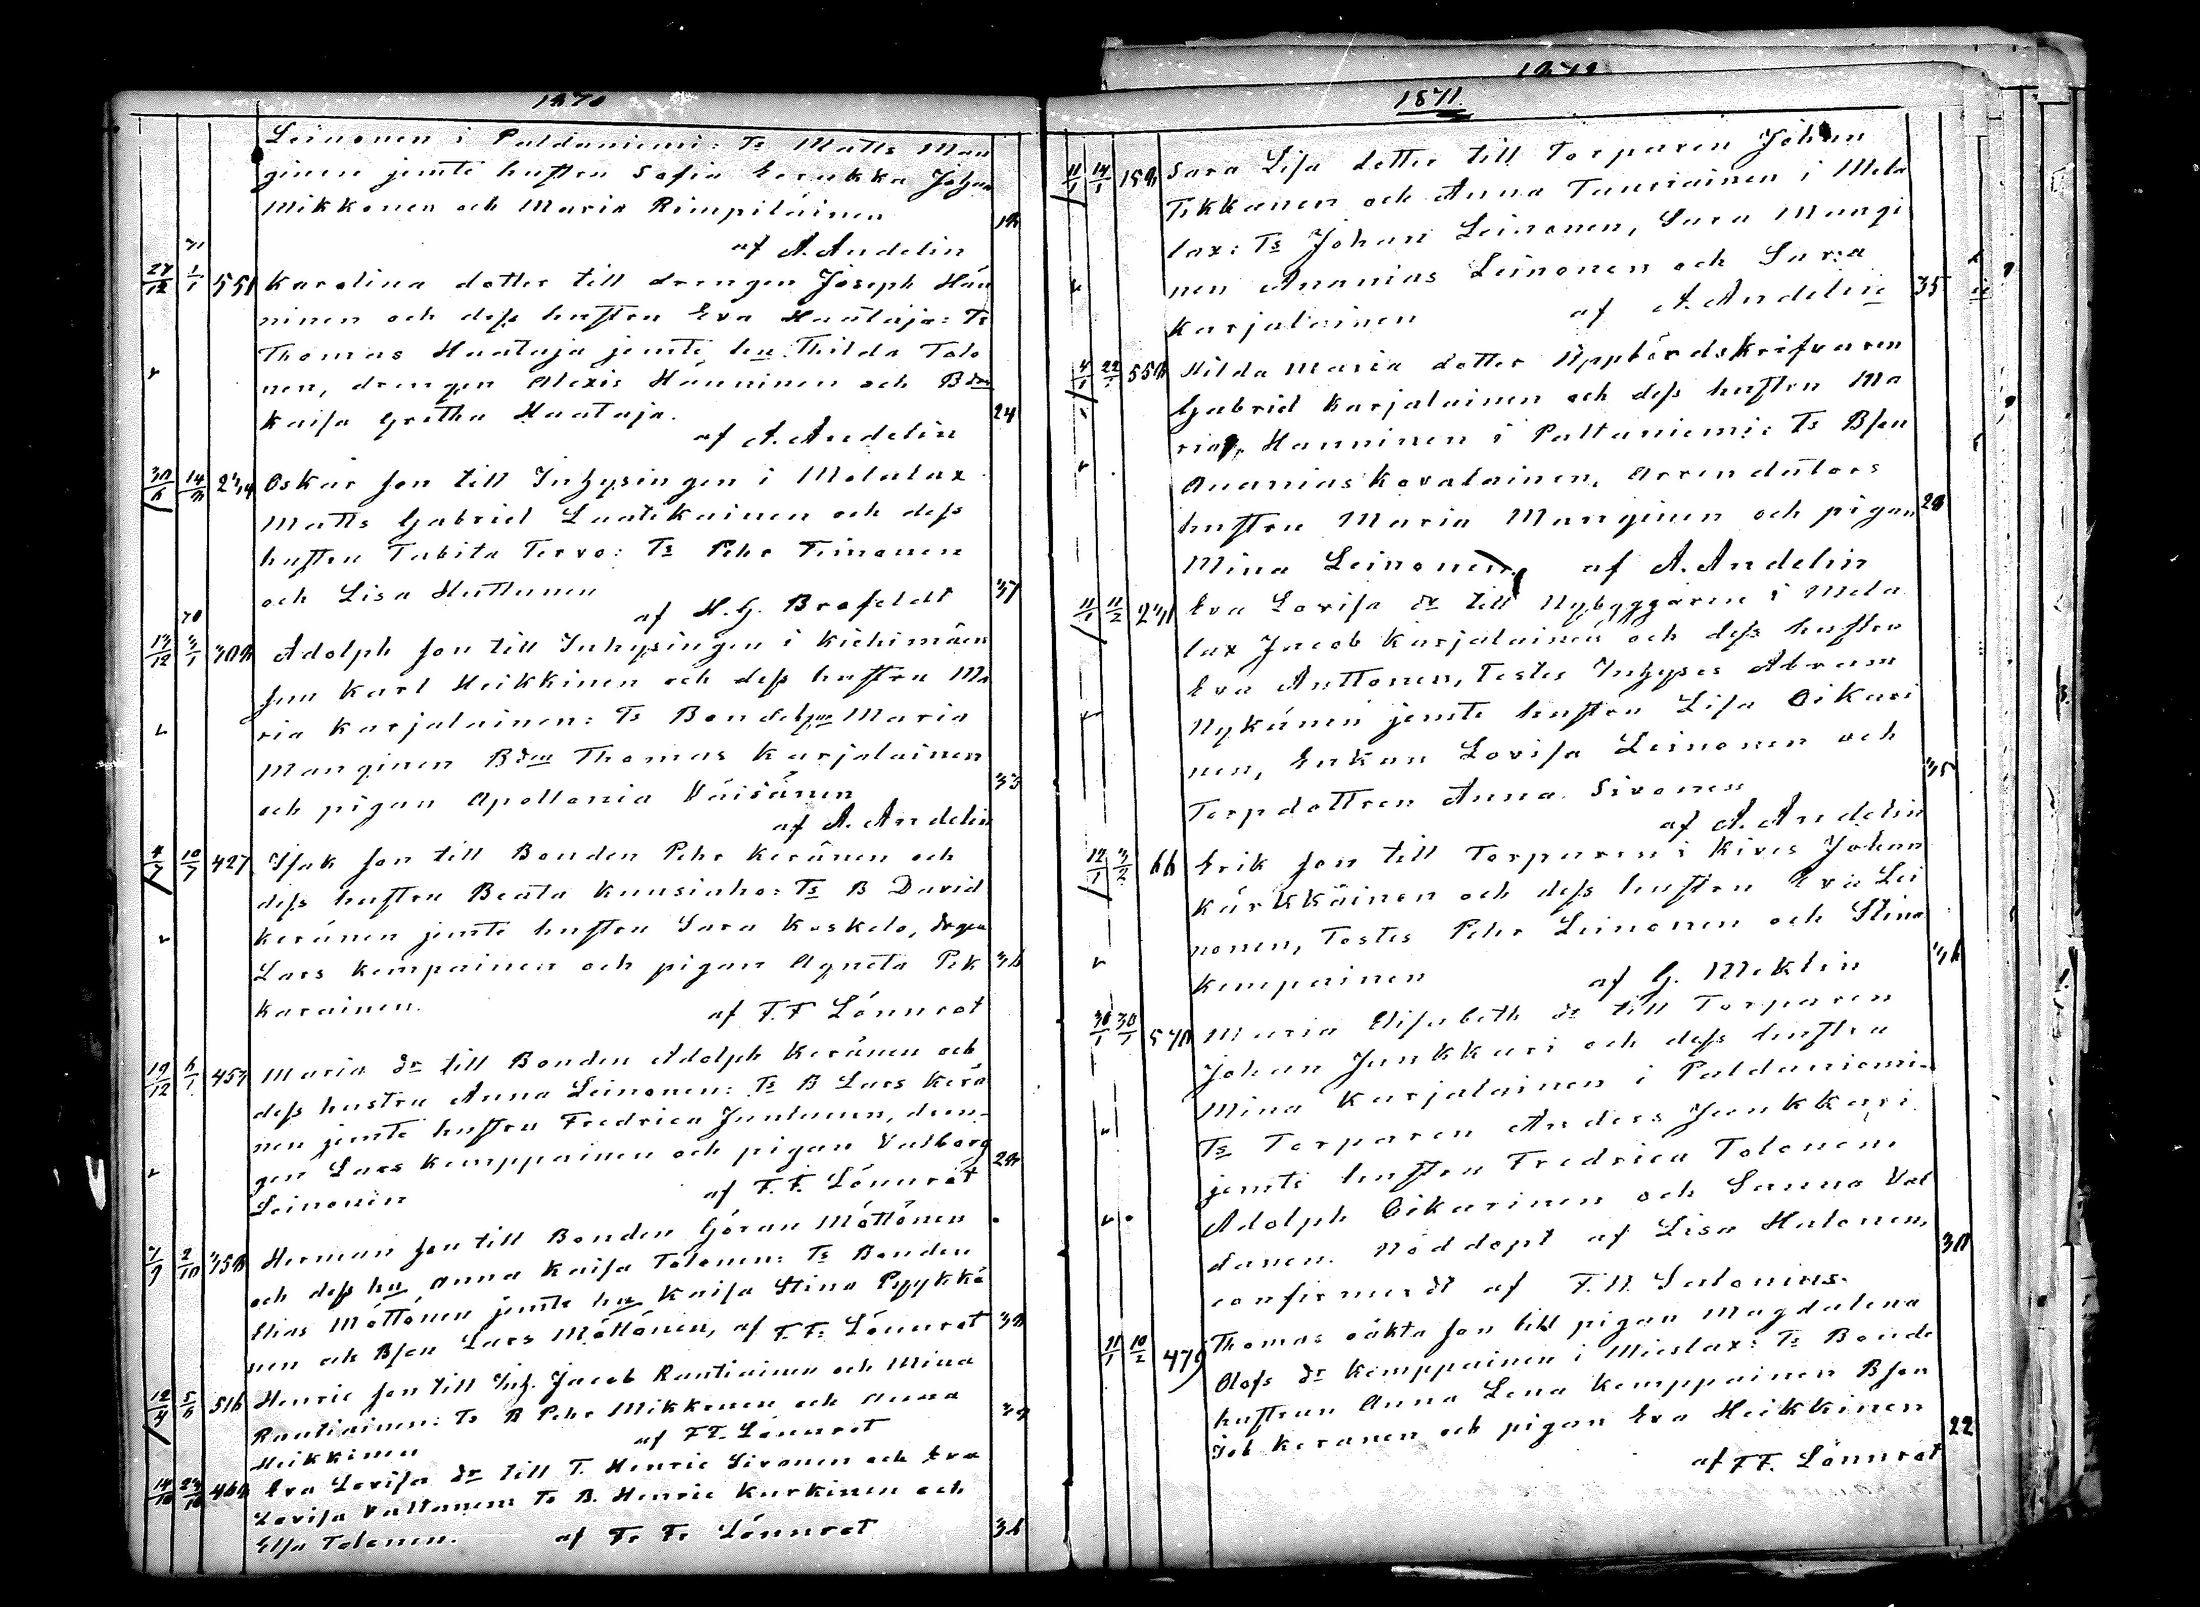 1870
Leinonen i Paldaniemi: Ts Matts Man
ginen jemte hustru Sofia Johan
Mikkonen och Maria Rimpiläinen
af A. Andelin
71
27/12 1/1 551 Karolina dotter till drengen Joseph Hän
ninen och dess hustru Eva Haataja: Ts
Thomas Haataja jemte hu Thilda Tolo
nen, drengen Alexis Hänninen och Bdr
Kaisa Gretha Haataja. 24
af A. Andelin
Oskar son till Inhysingen i Melalax
Matts Gabriel Laatikainen och dess
hustru Tabita Tervo: Ts Pehr Teinonen
och Lisa Huttunen 37
af H. G. Brofeldt
70
Adolph son till Inhysingen i Kiehimäen
suu Karl Heikkinen och dess hustru Ma
ria Karjalainen: Ts Maria
Manginen Thomas Karjalainen
och pigan Apollonia Väisänen 33
af A. Andelin
10/7 427 Isak son till Bonden Pehr Keränen och
dess hustru Beata Kuusiaho: Ts B David
Keränen jemte hustru Sara Koskelo, drgen
Lars Kemppainen och pigan Agneta Pik
karainen.
af F. F Lönnrot
19/12 6/1 457 Maria dr till Bonden Adolph Keränen och
dess hustru Anna Leinonen: Ts B Lars Kerä
nen jemte hustru Fredrica Juntunen, dren-
gen Lars Kemppainen och pigan Valborg
Leinonen
af F. F. Lönnrot
Herman son till Bonden Göran Möttönen
och dess hu Anna Kaisa Tolonen: Ts Bonden
Elias Möttönen jemte hu Kaisa Stina Pyykkö
nen och Bsen Lars Möttönen, af F. F. Lönnrot
Henric son till Inh. Jacob Rautiainen och Mina
Rautiainen: Ts B Pehr Mikkonen och Anna
Heikkinen af F F. Lönnrot
Eva Lovisa dr till T. Henric Sivonen och Eva
Lovisa Valtanen: Ts B. Henric Kurkinen och
Elsa Tolonen. af F. F. Lönnrot 36
1871
Sara Lisa dotter till Torparen Johan
Tikkanen och Anna Tauriainen i Mela
lax: Ts Johan Leinonen, Sara Mangi
nen Ananias Leinonen och Sara
Karjalainen af A. Andelin 35
Hilda Maria dotter Uppbördskrifvaren
Gabriel Karjalainen och dess hustru Ma
ria, Hänninen i Paltaniemi: Ts Bsen
Ananias Kovalainen, Arrendators
hustru Maria Manginen och pigan
Mina Leinonen, af A. Andelin
Eva Lovisa dr till Nybyggaren i Mela
lax Jacob Karjalainen och dess hustru
Eva Anttonen, Testes Inhyses Abram
Nykänen jemte hustru Lisa Oikari
nen, Enkan Lovisa Leinonen och
Torpdottren Anna Sivonen 35
af A. Andelin
12/1 3/2 66 Erik son till Torparen i Kives Johan
Kärkkäinen och dess hustru Eva Lei
nonen, Testes Pehr Leinonen och Stina
Kemppainen af G. Meklin 36
30/1 30/1 Maria Elisabeth dr till Torparen
Johan Junkkari och dess hustru
Mina Karjalainen i Paldaniemi.
Ts Torparen Anders Junkkari
jemte hustru Fredrica Tolonen.
Adolph Oikarinen och Sanna Val
danen. Nöddöpt af Lisa Halonen,
confirmerdt af F. W. Salonius. 30
479 Thomas oäkta son till pigan Magdalena
Olofs dr Kemppainen i Mieslax: Ts Bonde
hustrun Anna Lena Kemppainen Bsen
Job Keränen och pigan Eva Heikkinen 22
af F F. Lönnrot